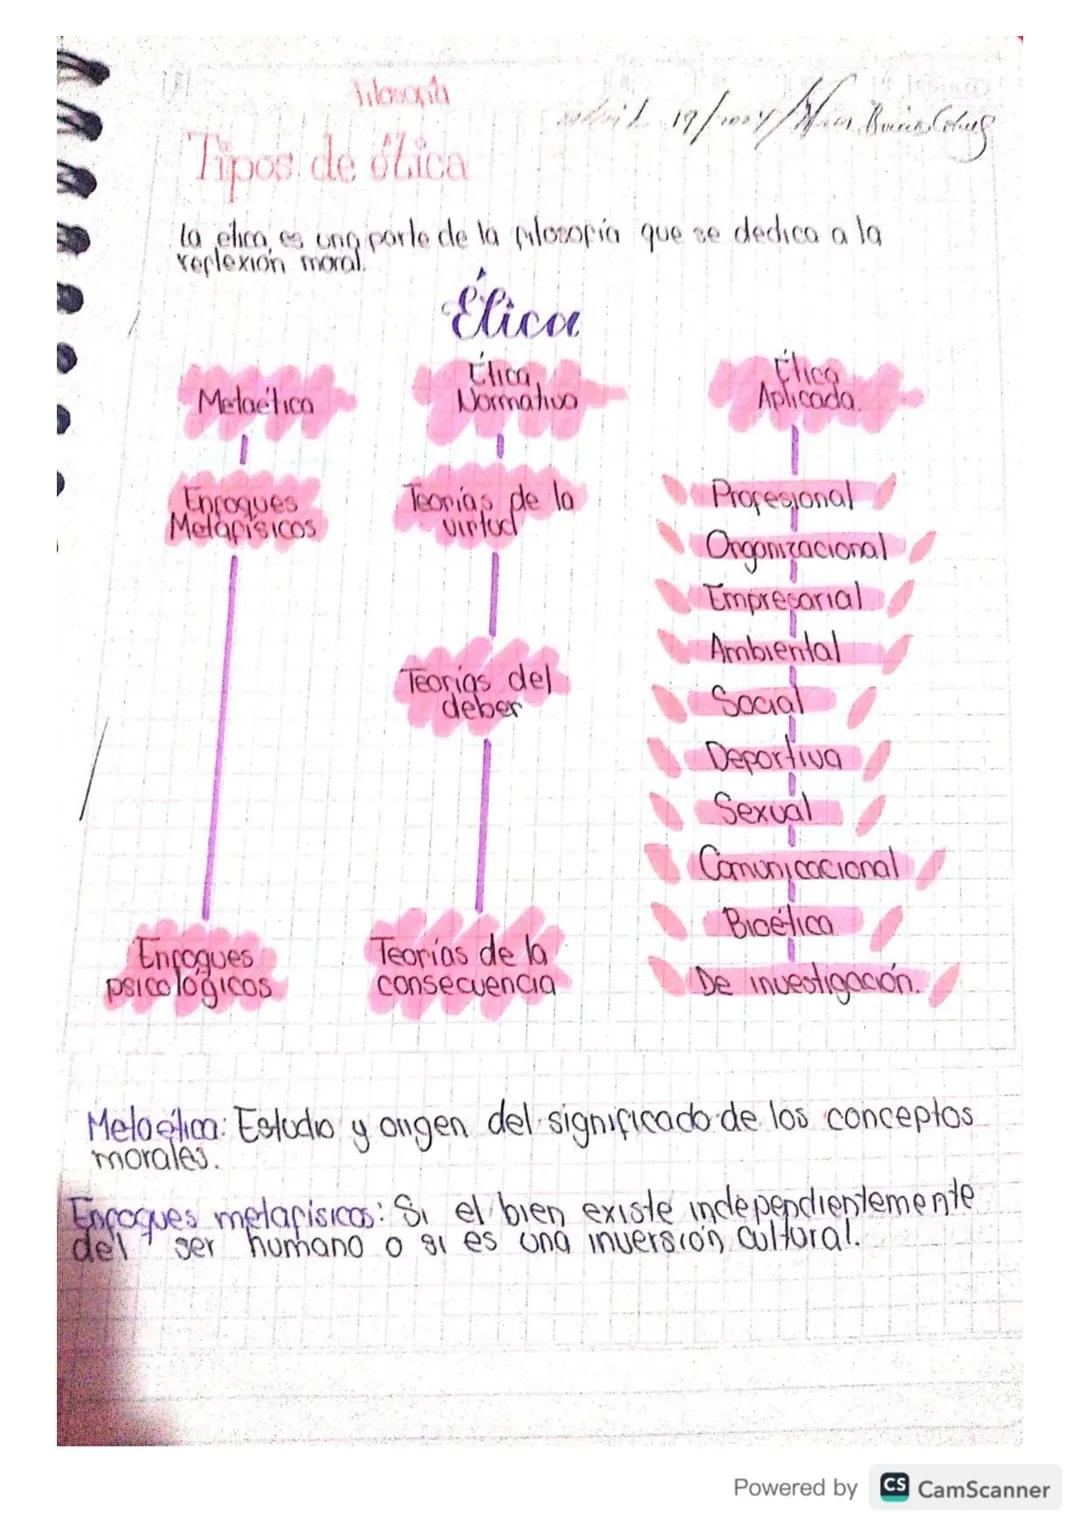 Filosofía
19/
Tipos de ética
la etica, es una parte de la filosofía que se dedica a la
reflexión moral.
Ética
Metaética
Ética
Normativa
Ética
Aplicada.
Enfoques
Metafísicos
Teorías de la
virtud
Teorías del
deber
Enfoques
psicológicos
Teorías de la
consecuencia
Profesional
Organizacional
Empresarial
Ambiental
Social
Deportiva
Sexual
Comunicacional
Bioética
De investigación.
Metaética: Estudio y origen del significado de los conceptos
morales.
Enfoques metafísicos: Si el bien existe independientemente
del ser humano o si es una inversión cultural.
Powered by CS CamScanner